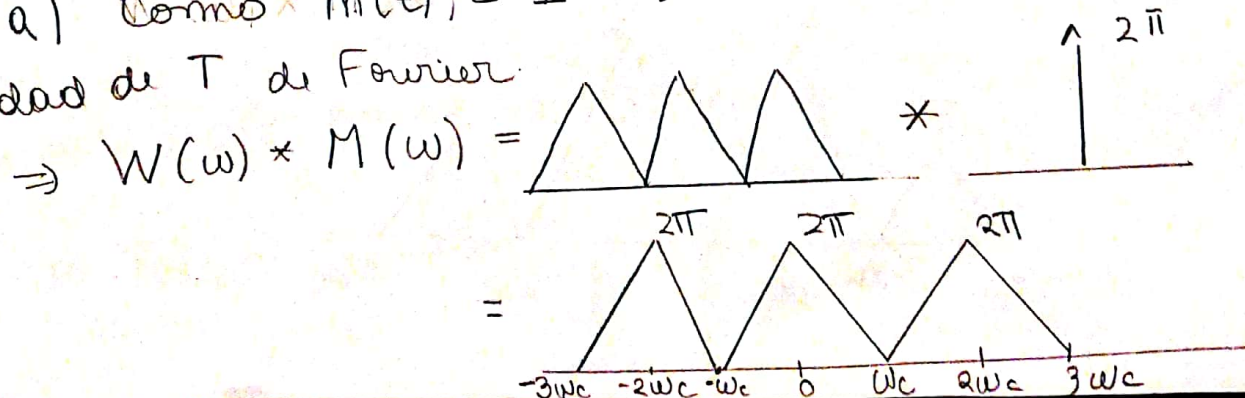 a) Como
2π
dad de T de Fourier
⇒ W(ω) * M(ω) = *
2π 2π 2π
=
-3ωc -2ωc -ωc 0 ωc 2ωc 3ωc